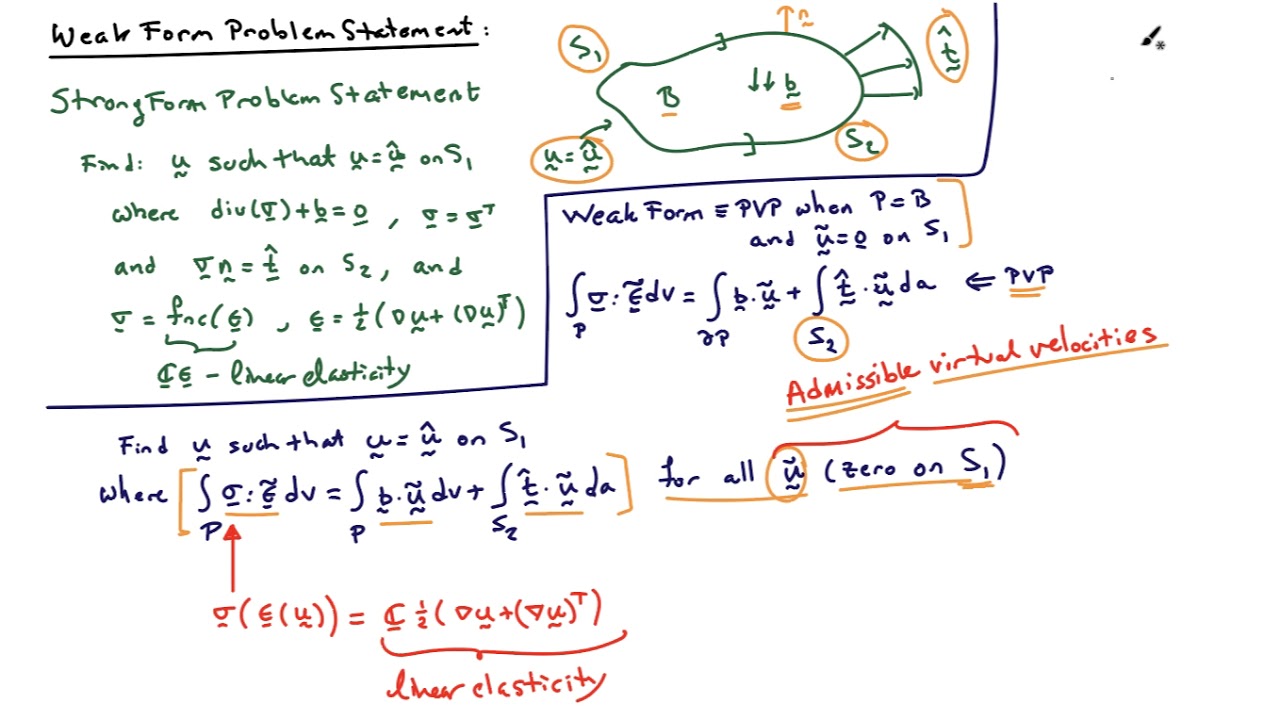 Weak Form Problem Statement:
Strong Form Problem Statement
Find: u such that u = û on S₁
where div(σ) + b = 0 , σ = σᵀ
and σn = t̂ on S₂, and
σ = fnc(ε) , ε = ½(∇u + (∇u)ᵀ)
ℂε - linear elasticity
S₁
n
t̂
B
↓↓ b
u = û
S₂
Weak Form ≡ PVP when P = B
and ũ = 0 on S₁
∫_P σ : ε̃ dv = ∫_∂P b · ũ + ∫_S₂ t̂ · ũ da ⇐ PVP
Admissible virtual velocities
Find u such that u = û on S₁
where [∫_P σ : ε̃ dv = ∫_P b · ũ dv + ∫_S₂ t̂ · ũ da] for all ũ (zero on S₁)
σ(ε(u)) = ℂ ½(∇u + (∇u)ᵀ)
linear elasticity